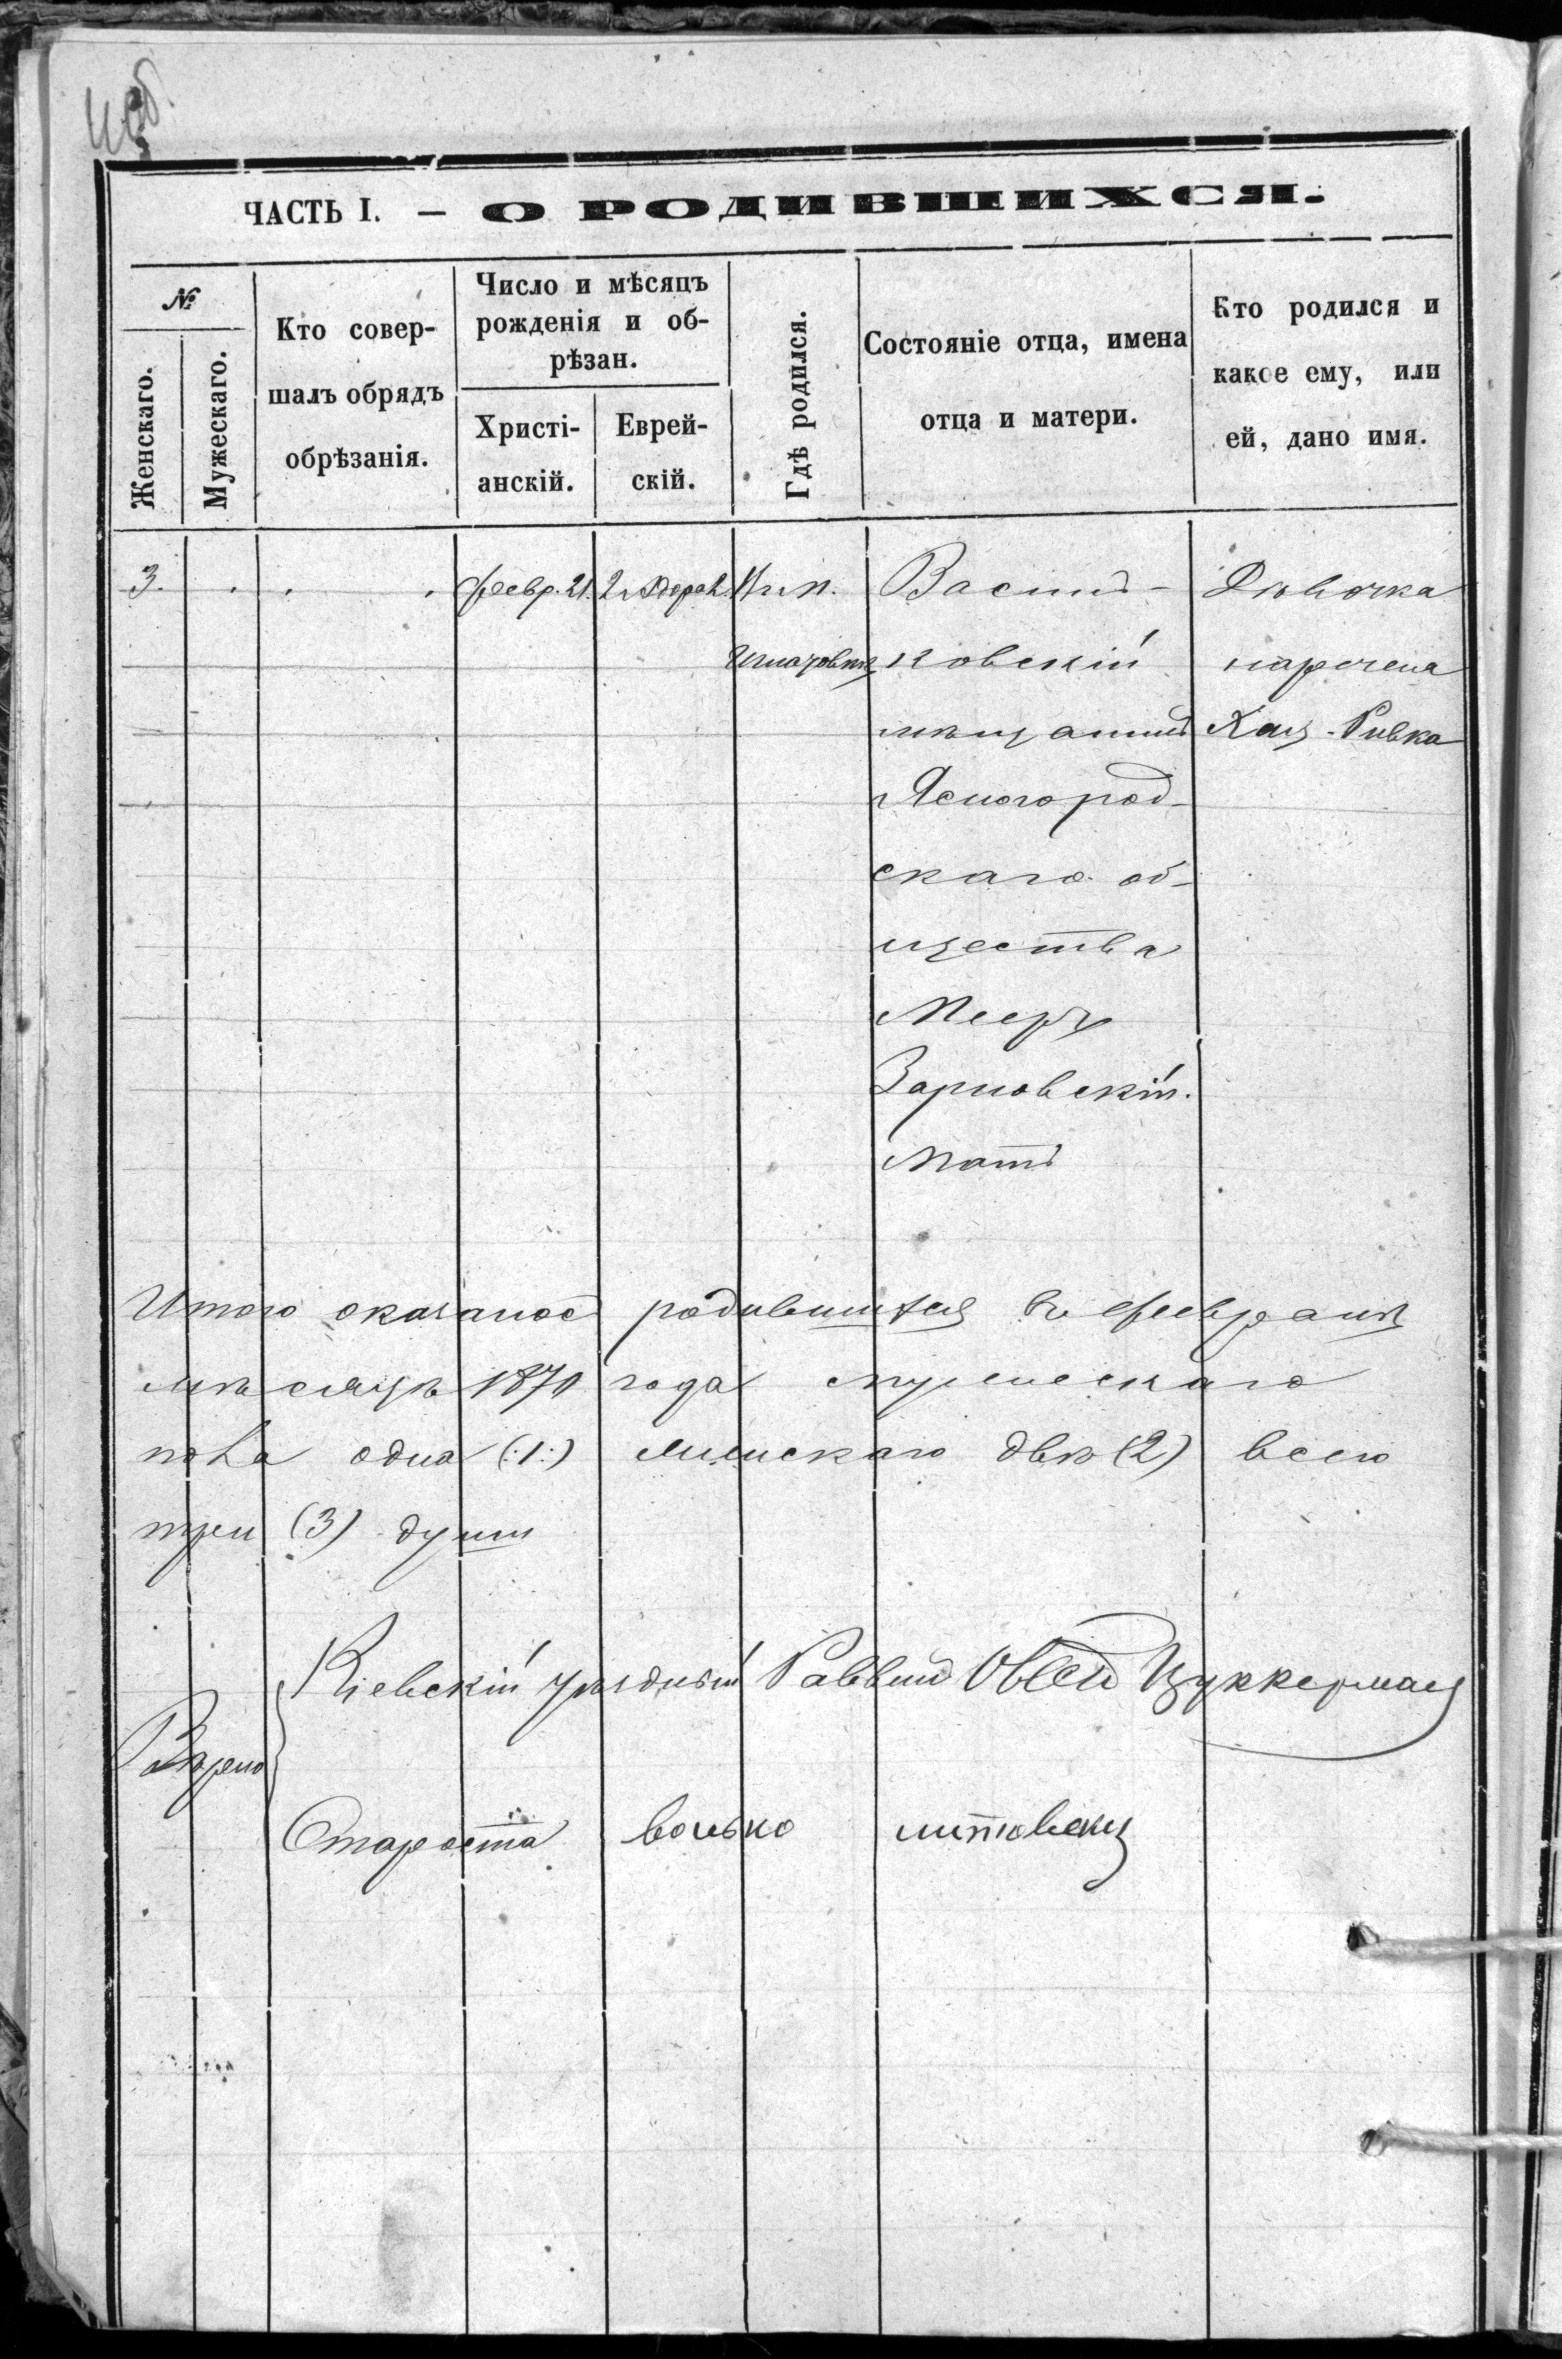 ЧАСТЬ I. — О РОДИВШИХСЯ.
№
Женскаго.
Мужескаго.
Кто совер-
шалъ обрядъ
обрѣзанія.
Число и мѣсяцъ
рожденія и об-
рѣзан.
Христі-
анскій.
Еврей-
скій.
Гдѣ родился.
Состояніе отца, имена
отца и матери.
Кто родился и
какое ему, или
ей, дано имя.
3.
Февр. 21.
2
Василь-
ковскій
мѣщанинъ
Ясногород-
скаго об-
щества
Мееръ
Зарновскій.
Мать
Дѣвочка
наречена
Хая-Ривка
Итого оказалось родившихся въ Февралѣ
мѣсяцѣ 1870 года мужескаго
пола одна (:1:) женскаго двѣ (2) всего
три (3) души
Вѣрно
Кіевскій уѣздный Раввинъ Овсей Цуккерман
Староста волько литовски